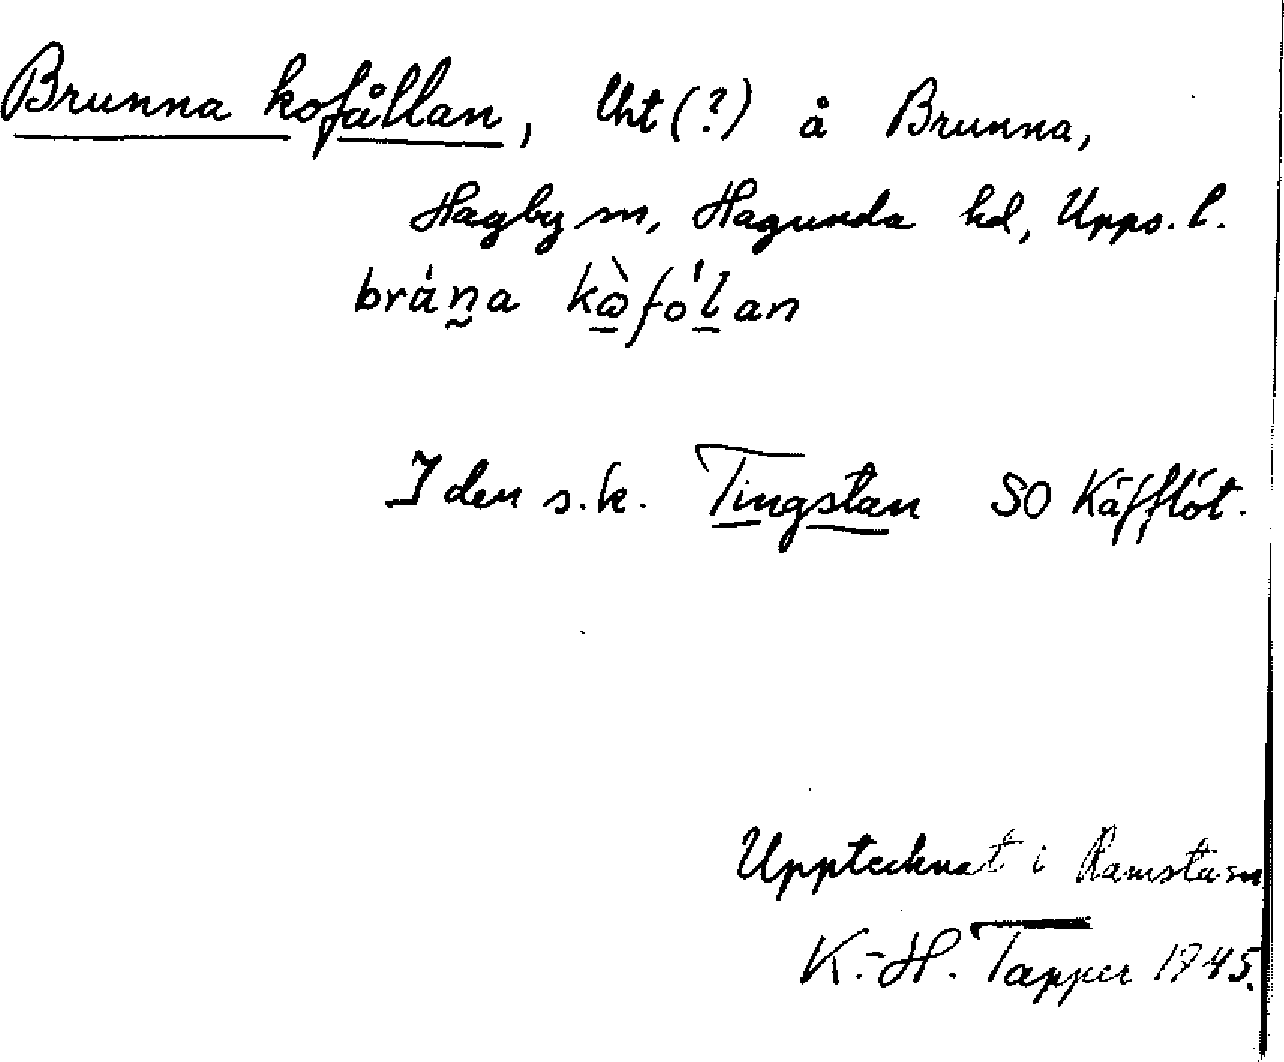 Brunna kofållan, Uht(?) å Brunna,
Hagby sn, Hagunda hd, Upps. l.
I den s.k. Tingstan SO Käfflöt.
Upptecknat i Ramsta sn
K.-H. Tapper 1945.